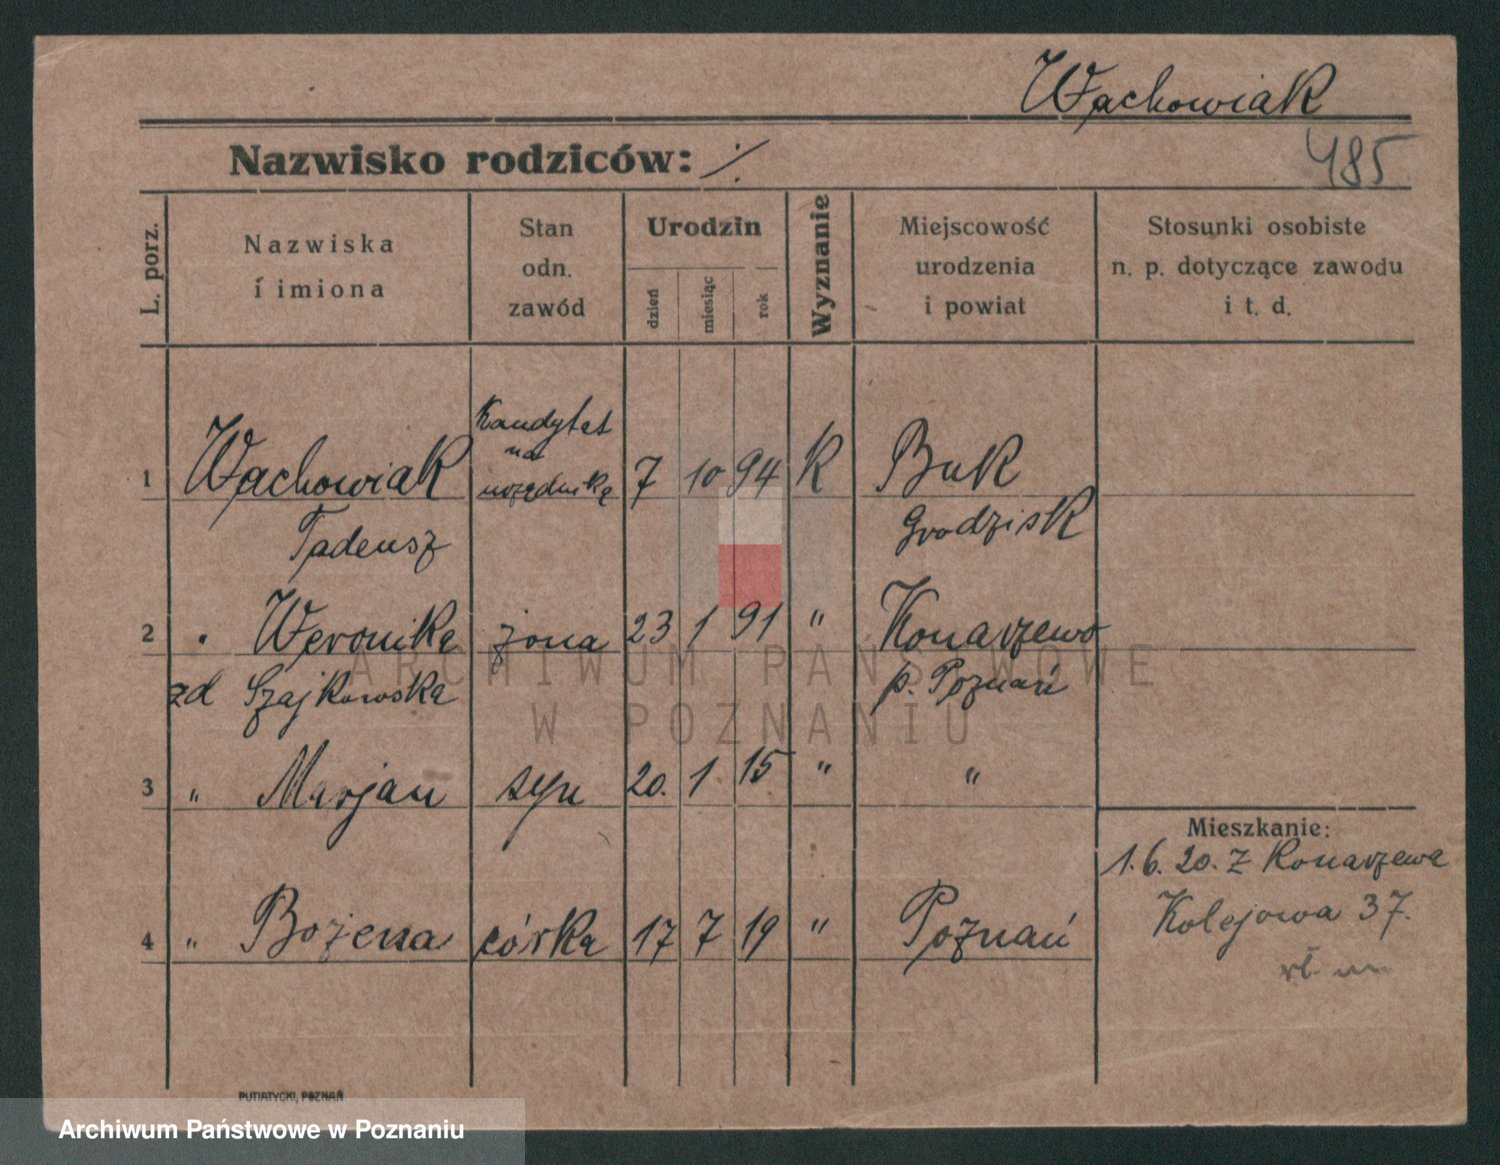 Wachowiak
Nazwisko rodziców: ·/·
485
L. porz.
Nazwiska
i imiona
Stan
odn.
zawód
Urodzin
dzień
miesiąc
rok
Wyznanie
Miejscowość
urodzenia
i powiat
Stosunki osobiste
n. p. dotyczące zawodu
i t. d.
Kandydat
na
1 Wachowiak urzędnika 7 10 94 K Buk
Tadeusz Grodzisk
2 " Weronika żona 23 1 91 " Konarzewo
zd Szajkowska p. Poznań
3 " Marjan syn 20. 1 15 " "
Mieszkanie:
1.6.20. z Konarzewa
Kolejowa 37.
4 " Bożena córka 17 7 19 " Poznań
PUTIATYCKI, POZNAŃ
ARCHIWUM PAŃSTWOWE
W POZNANIU
Archiwum Państwowe w Poznaniu